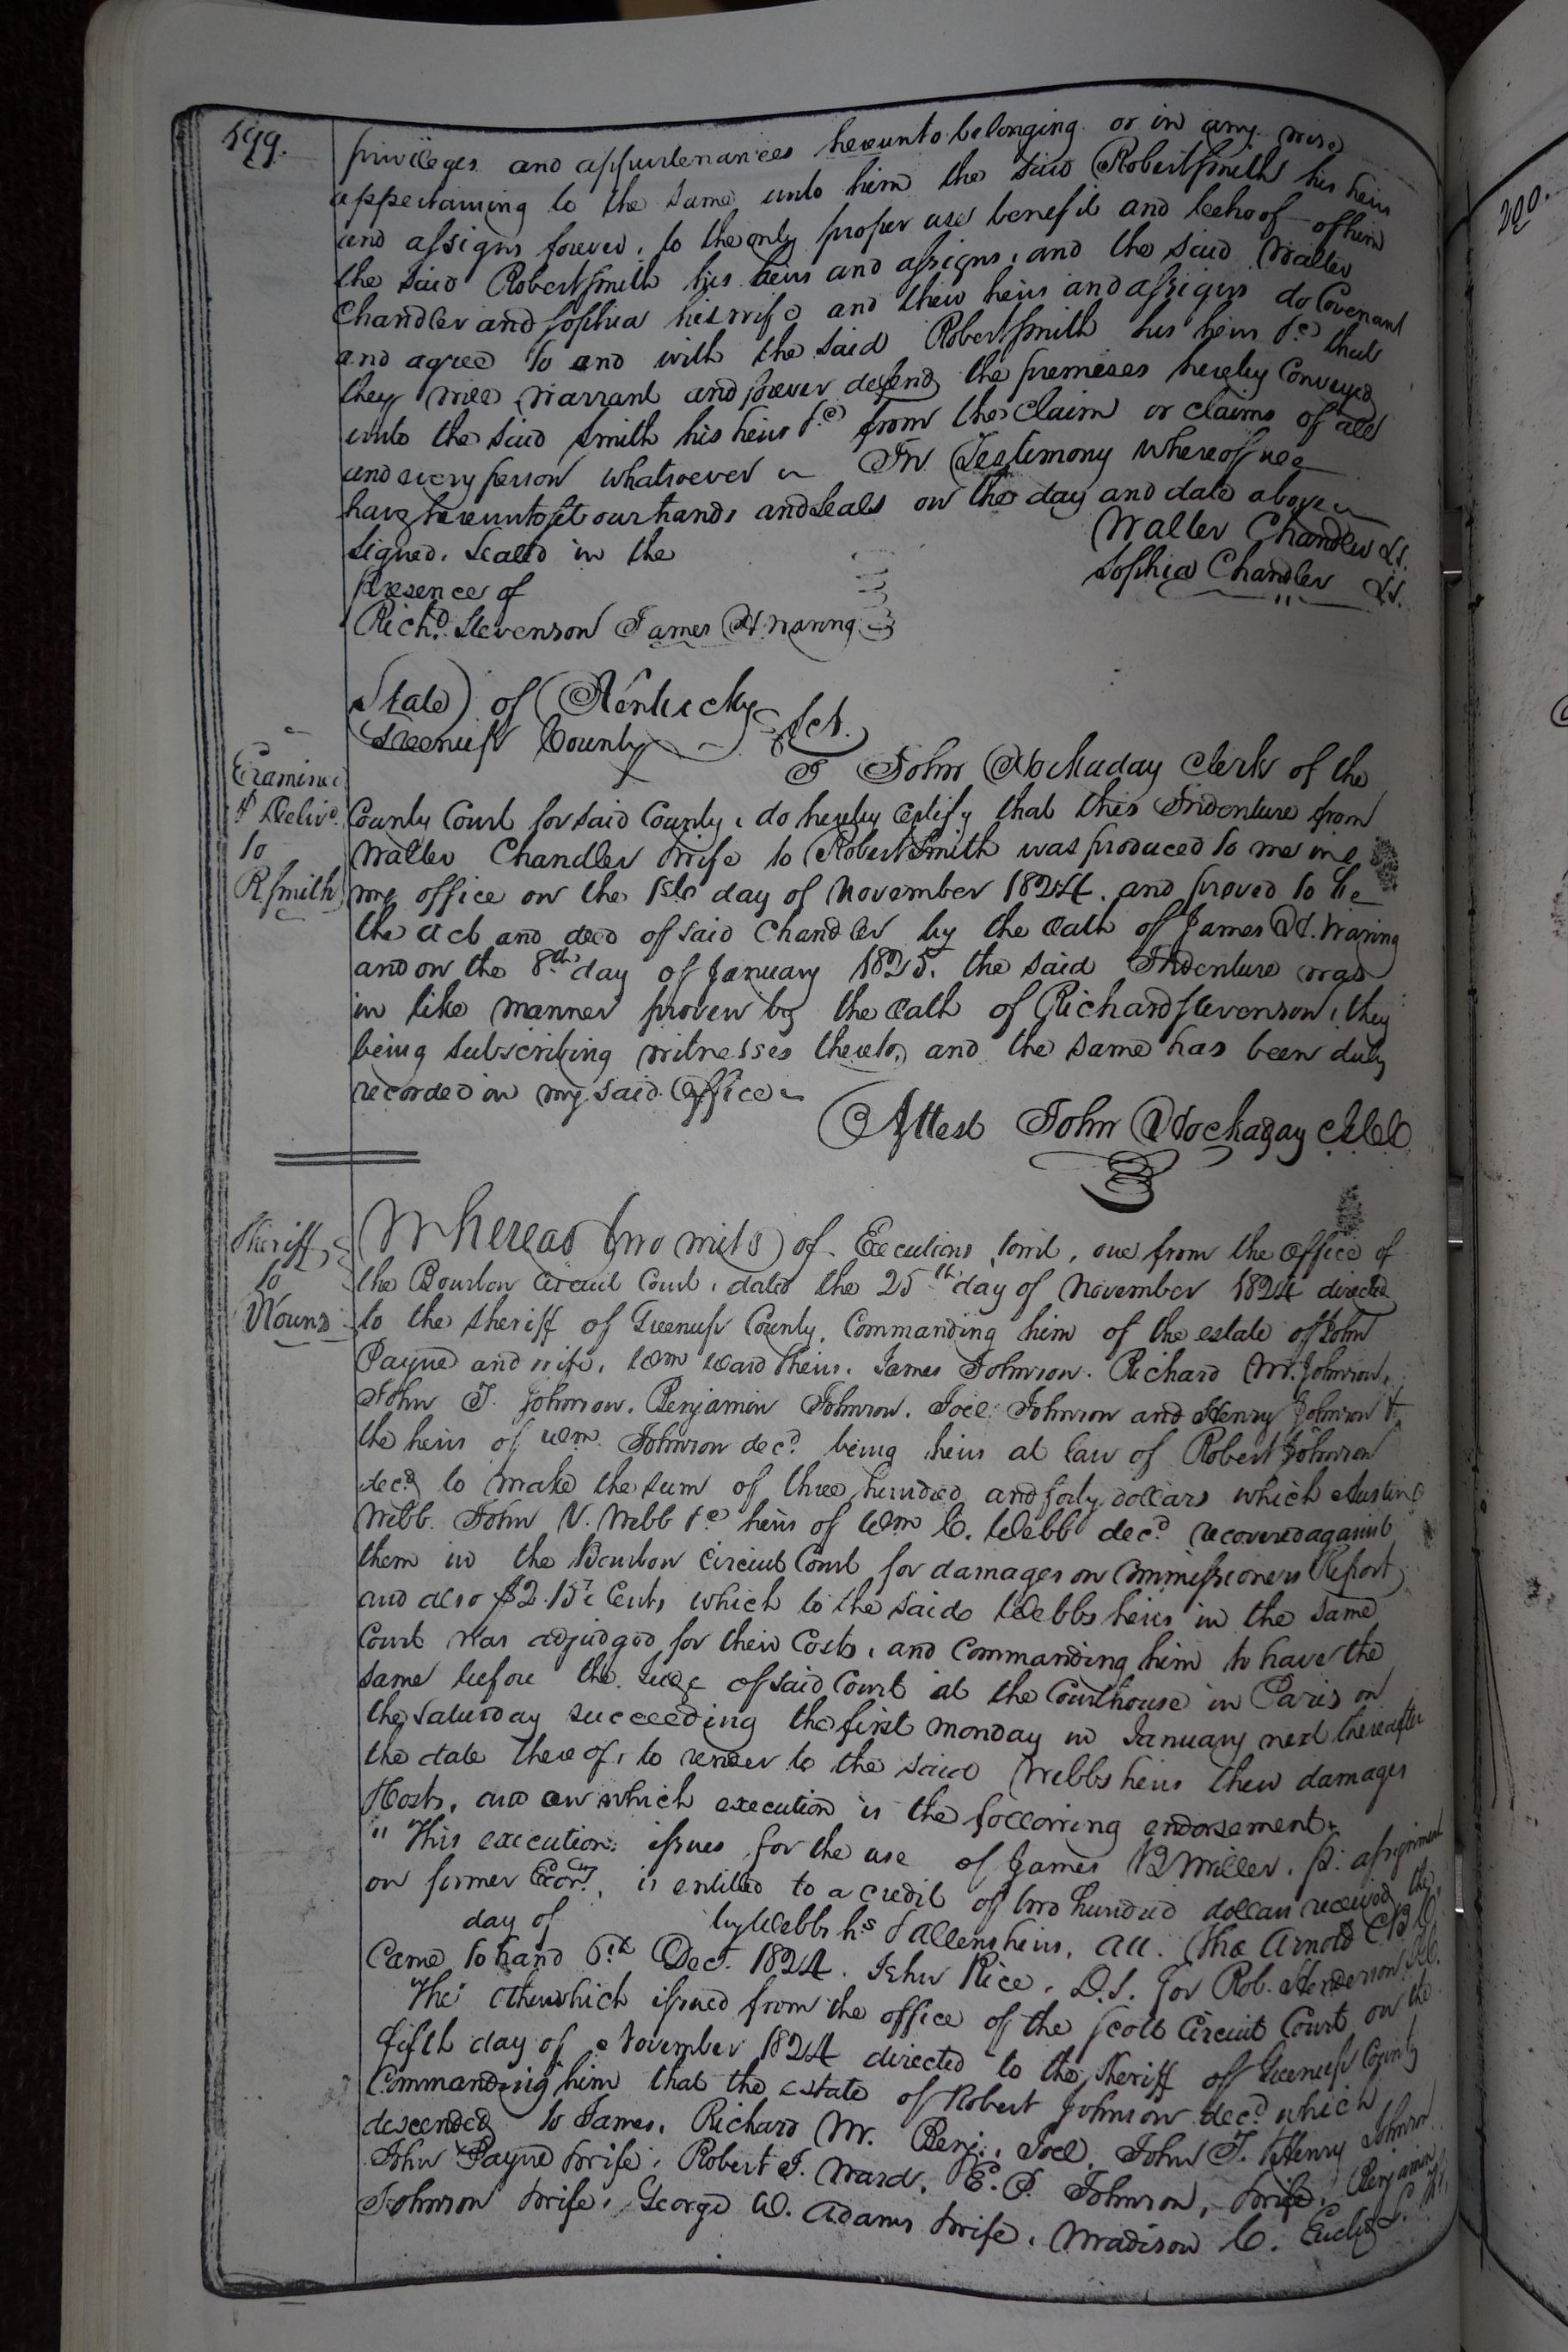 199.
privileges and appurtenances hereunto belonging or in any wise
appertaining to the same unto him the said Robert Smith his heirs
and assigns forever, to the only proper use benefit and behoof of him
the said Robert Smith his heirs and assigns, and the said Walter
Chandler and Sophia his wife and their heirs and assigns do Covenant
and agree to and with the said Robert Smith his heirs &c that
they will Warrant and forever defend the premises hereby Conveyed
unto the said Smith his heirs &c from the Claim or claims of all
and every person whatsoever In Testimony whereof we
have hereunto set our hands and seals on the day and date above
Signed, Sealed in the
presence of
Walter Chandler LS.
Sophia Chandler LS.
Richd. Stevenson James H. Waring
State of Kentucky
Greenup County Sct.
I John Hockaday Clerk of the
Examined
& Delivd.
to
R Smith
County Court for said County, do hereby Certify that this Indenture from
Walter Chandler & wife to Robert Smith was produced to me in
my office on the 1st day of November 1824. and proved to be
the act and deed of said Chandler by the Oath of James H. Waring
and on the 8th day of January 1825. the said Indenture was
in like manner proven by the Oath of Richard Stevenson, they
being Subscribing witnesses thereto, and the same has been duly
recorded in my said Office
Attest John Hockaday
Sheriff
to
Whereas two writs of Executions, towit, one from the Office of
the Bourbon Circuit Court, dated the 25th day of November 1824 directed
to the Sheriff of Greenup County, Commanding him of the estate of John
Payne and wife, Wm Ward heirs. James Johnson. Richard M. Johnson,
John T. Johnson, Benjamin Johnson, Joel Johnson and Henry Johnson &
the heirs of Wm. Johnson decd. being heirs at law of Robert Johnson
decd to make the sum of three hundred and forty dollars which Austin
Webb. John V. Webb &c heirs of Wm C. Webb decd recovered against
them in the Bourbon Circuit Court for damages on Commissioners Report,
and also $2. Cents which to the said Webbs heirs in the same
Court was adjudged for their Costs, and Commanding him to have the
same before the Judge of said Court at the Courthouse in Paris on
the Saturday succeeding the first Monday in January next thereafter
the date thereof, to render to the said Webbs heirs their damages
& Costs, and on which execution is the following endorsement,
"This execution issues for the use of James Miller. pr. assignment
on former Exon. is entitled to a credit of two hundred dollars received the
day of by Webbs hs & Allens heirs. att. Tho Arnold
Came to hand 6th Dec. 1824. John Rice, D.S. for Rob. Henderson
The other which issued from the office of the Scott Circuit Court on the
fifth day of November 1824 directed to the Sheriff of Greenup County
Commanding him that the estate of Robert Johnson decd which
descended to James, Richard M. Benj., Joel, John T. & Henry Johnson
John Payne & wife, Robert J. Ward, E. P. Johnson, & wife, Benjamin
Johnson & wife, George W. Adams & wife, Madison C.